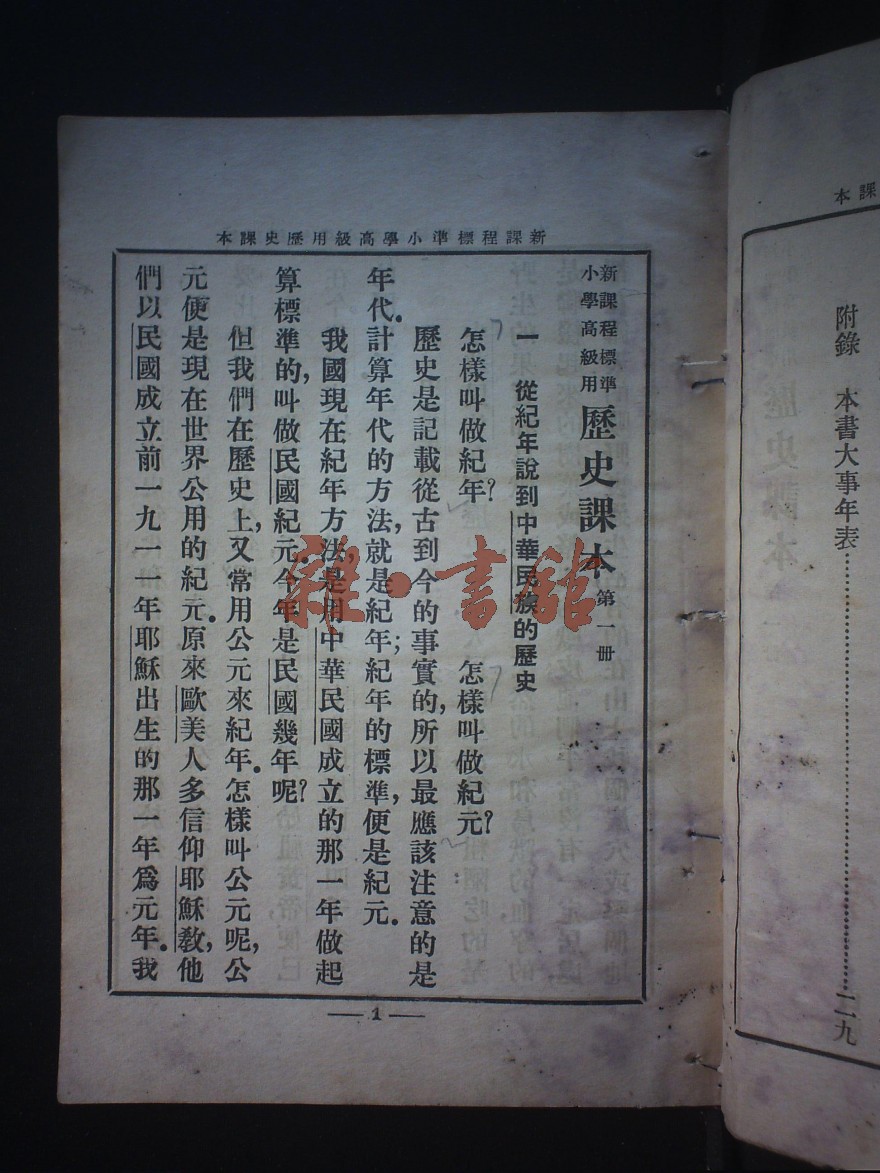 新課程標準小學高級用歷史課本
新課程標準
小學高級用
歷史課本 第一册
一 從紀年說到中華民族的歷史
怎樣叫做紀年？ 怎樣叫做紀元？
歷史是記載從古到今的事實的，所以最應該注意的是
年代。計算年代的方法，就是紀年；紀年的標準，便是紀元。
我國現在紀年方法，是用中華民國成立的那一年做起
算標準的，叫做民國紀元。今年是民國幾年呢？
但我們在歷史上，又常用公元來紀年。怎樣叫公元呢，公
元便是現在世界公用的紀元。原來歐美人多信仰耶穌敎，他
們以民國成立前一九一一年耶穌出生的那一年爲元年。我
1
課本
附錄 本書大事年表……二九
雜·書館